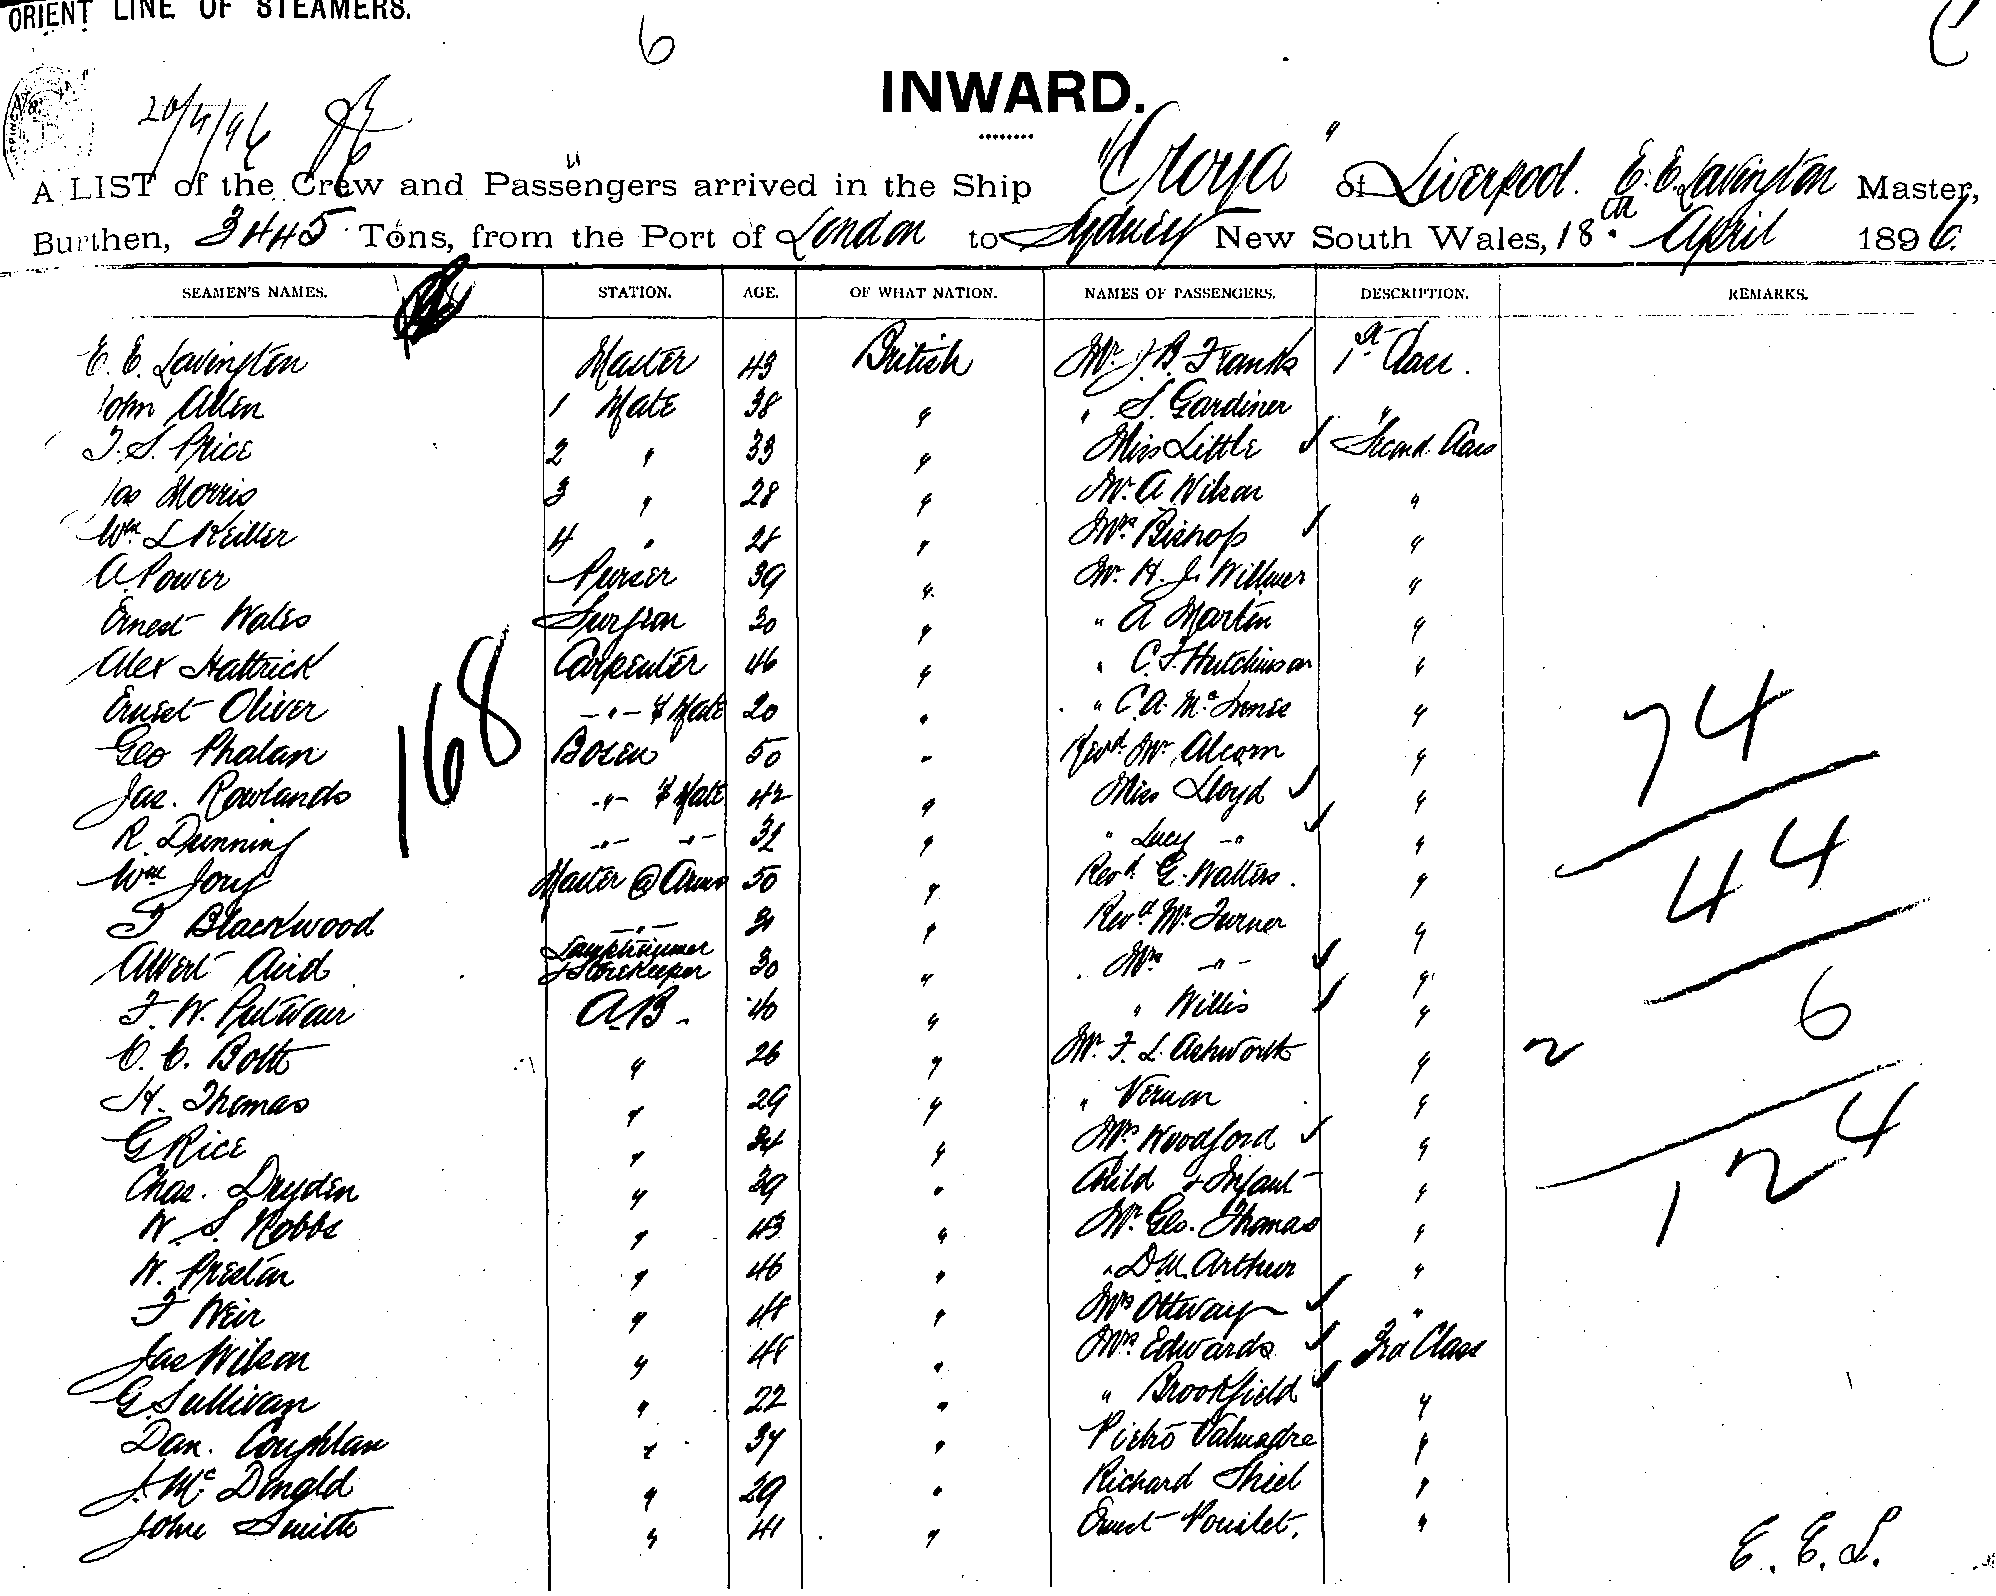 ORIENT LINE OF STEAMERS.
6
INWARD.
20/4/96
A LIST of the Crew and Passengers arrived in the Ship "Oroya" of Liverpool. E. E. Lavington Master,
Burthen, 3445 Tons, from the Port of London to Sydney New South Wales, 18th April 1896.
SEAMEN'S NAMES. STATION. AGE. OF WHAT NATION. NAMES OF PASSENGERS. DESCRIPTION. REMARKS.
E. E. Lavington Master 43 British Mr. J. B. Franks 1st Class.
John Allen 1 Mate 38 " " S. Gardiner "
T. S. Price 2 " 33 " Miss Little Second Class
Jas Morris 3 " 28 " Mr. A Wilson "
Wm L Keiller 4 " 28 " Mrs Bishop "
A. Power Purser 39 " Mr. H. J. Willmer "
Ernest Wales Surgeon 30 " " A Martin "
Alex Hattrick Carpenter 46 " " C. F. Hutchinson "
Ernest Oliver -"- Mate 20 " " C. A. Mc "
Geo Phalan Bosen 50 " Revd. Mr. Alcorn "
Jas. Rowlands -"- Mate 42 " Miss Lloyd "
R. Dunning -"- -"- 32 " " Lucy -" "
Wm Jory Master @ Arms 50 " Revd. G. Walters. "
T Blackwood -"- 31 " Revd Mr. Turner "
Albert Avid Lamptrimmer & Storekeeper 30 " Mrs -"- "
F. W. A.B. 40 " " Willis "
C. C. Bott " 26 " Mr. F. L. Ashworth "
H. Thomas " 29 " " Vernon "
G Rice " 34 " Mrs Woodford "
Chas. Dryden " 39 " Child & Infant "
W. S. Hobbs " 43 " Mr. Geo. Thomas "
W. Preston " 46 " " D. M. Arthur "
F Weir " 48 " Mrs Ottway "
Jas Wilson " 48 " Mrs Edwards 3rd Class
G Sullivan " 22 " " Brookfield "
Dan. Coughlan " 37 " Pietro Valmadre "
J. Mc Dongld " 29 " Richard Shiel "
John Smith " 41 " Ernest "
168
74
44
6
2
124
E. E. L.